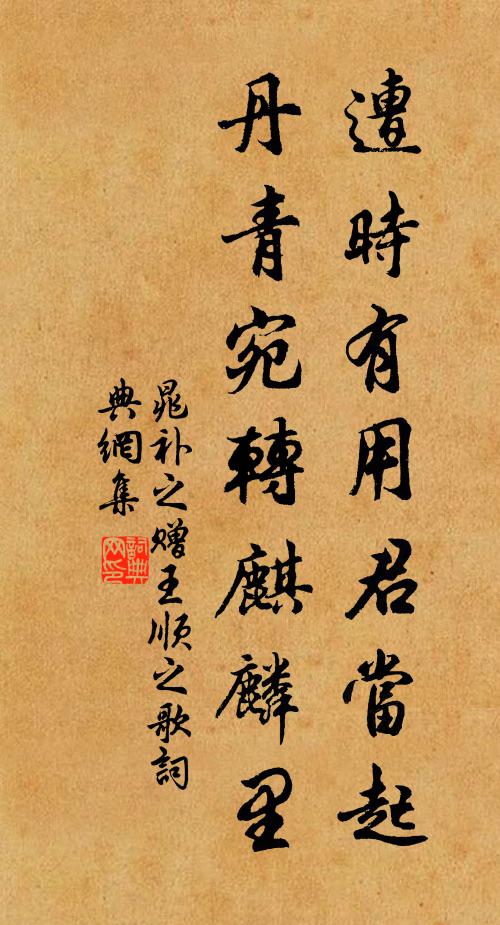 遭時有用君當起
丹青宛轉麒麟里
晁补之赠王顺之歌詞
典網集
詞典
网印